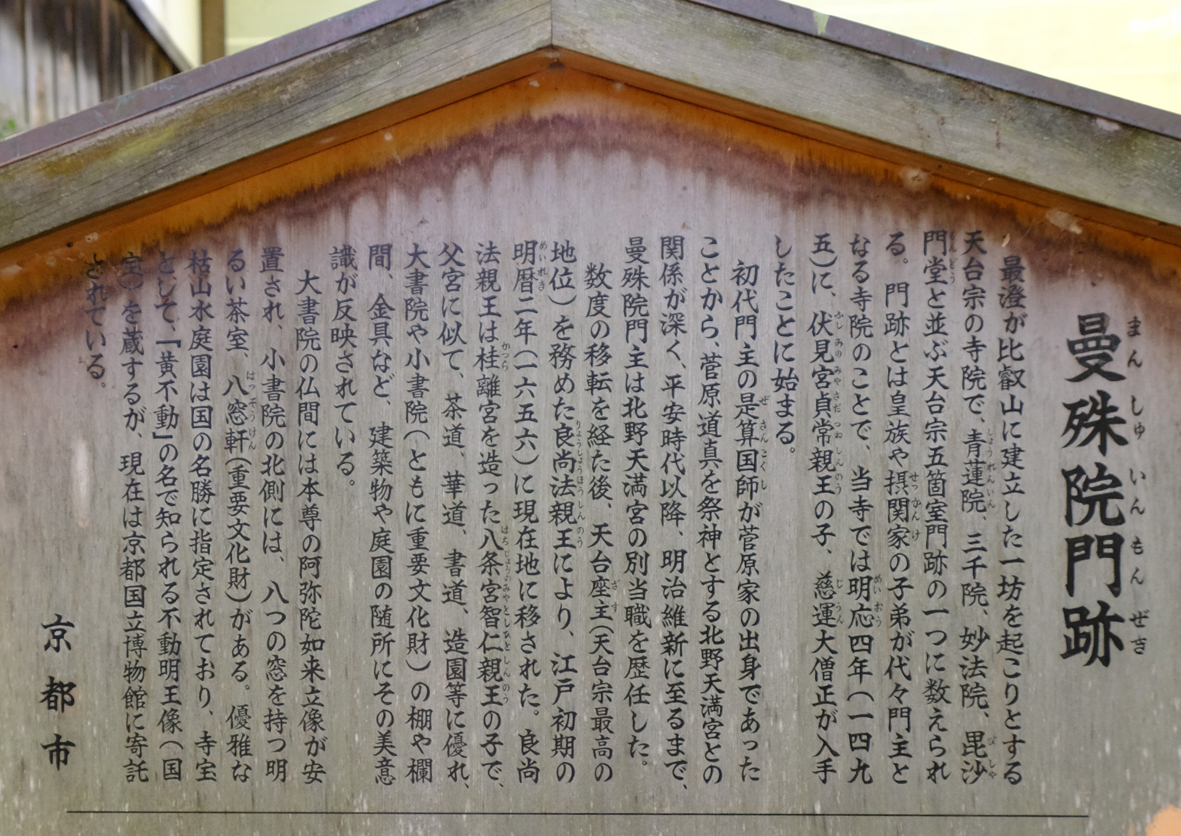 曼殊院門跡
まんしゅいんもんぜき
最澄が比叡山に建立した一坊を起こりとする
天台宗の寺院で、青蓮院、三千院、妙法院、毘沙
門堂と並ぶ天台宗五箇室門跡の一つに数えられ
る。門跡とは皇族や摂関家の子弟が代々門主と
なる寺院のことで、当寺では明応四年(一四九
五)に、伏見宮貞常親王の子、慈運大僧正が入手
したことに始まる。
初代門主の是算国師が菅原家の出身であった
ことから、菅原道真を祭神とする北野天満宮との
関係が深く、平安時代以降、明治維新に至るまで、
曼殊院門主は北野天満宮の別当職を歴任した。
数度の移転を経た後、天台座主(天台宗最高の
地位)を務めた良尚法親王により、江戸初期の
明暦二年(一六五六)に現在地に移された。良尚
法親王は桂離宮を造った八条宮智仁親王の子で、
父宮に似て、茶道、華道、書道、造園等に優れ、
大書院や小書院(ともに重要文化財)の棚や欄
間、金具など、建築物や庭園の随所にその美意
識が反映されている。
大書院の仏間には本尊の阿弥陀如来立像が安
置され、小書院の北側には、八つの窓を持つ明
るい茶室、八窓軒(重要文化財)がある。優雅な
枯山水庭園は国の名勝に指定されており、寺宝
として、「黄不動」の名で知られる不動明王像(国
宝)を蔵するが、現在は京都国立博物館に寄託
されている。
京都市